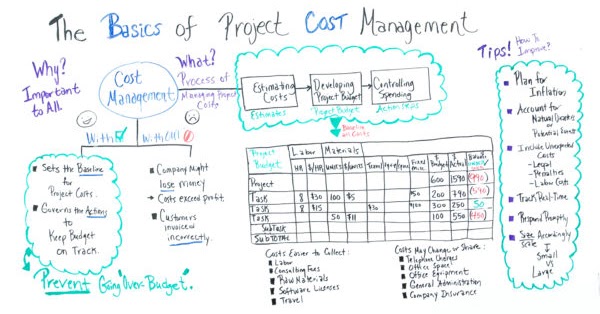 The Basics of Project COST Management
Why?
Important
to All.
Cost
Management
What?
Process of
Managing Project
Costs
With
With(out)
Sets the Baseline
for
Project Costs.
Governs the Actions
to
Keep Budget
on Track.
Prevent Going "Over-Budget".
Company Might
lose money
→ Costs exceed profit.
Customers
invoiced
incorrectly.
Estimating
Costs
Developing
Project Budget
Controlling
Spending
Estimates
Project Budget
Baseline
on Costs
Project
Budget
Labor
Materials
HR
$/HR
Units
Travel
Fixed
Budget
Actual
Balance
Project
600
1590
Task
8
$30
100
$5
$50
200
Task
8
$15
$30
300
250
50
50
$11
100
550
SubTask
SubTotal
Costs Easier to Collect:
Labor
Consulting Fees
Raw Materials
Software Licenses
Travel
Costs May Change or Share:
Telephone Charges
Office Space
Office Equipment
General Administration
Company Insurance
Tips!
How To
Improve?
Plan for
Inflation
Account for
Natural Disasters
or
Potential Events
Include Unexpected
Costs
-Legal
-Penalties
-Labor Costs
Track Real-Time
Respond Promptly
Size Accordingly
Scale
Small
vs
Large